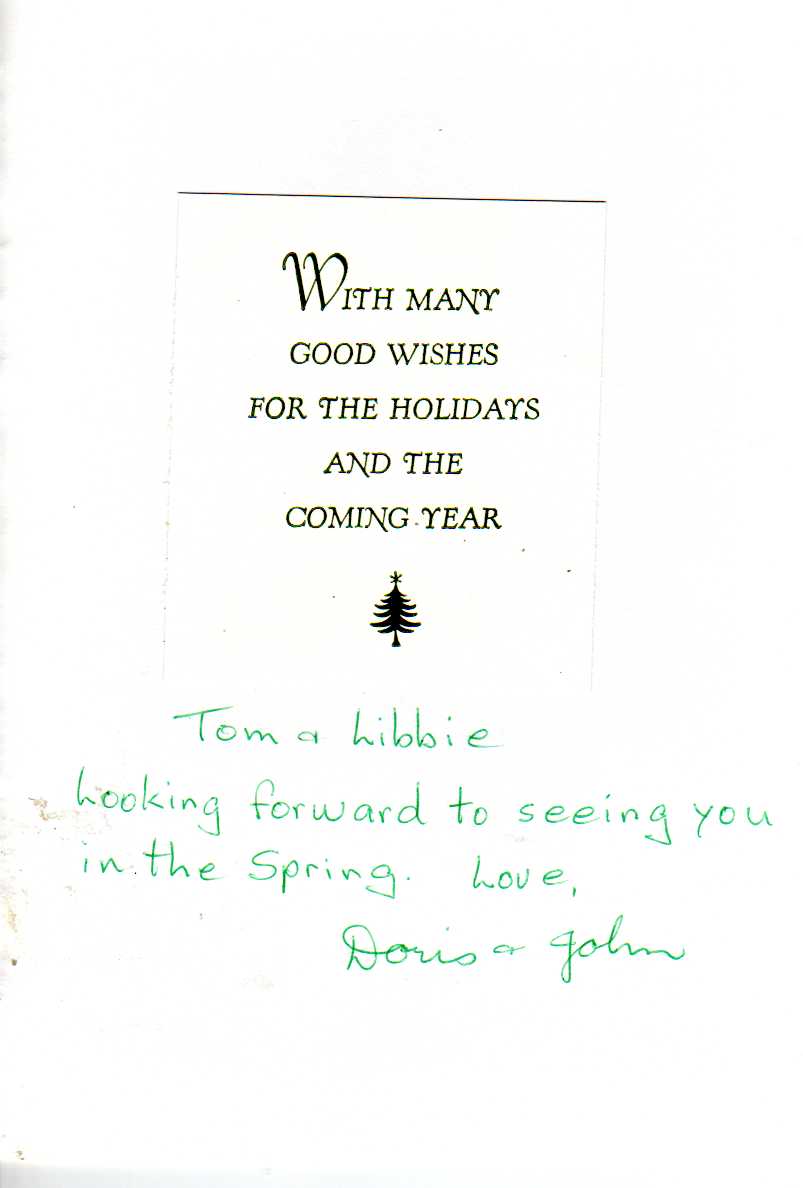 WITH MANY
GOOD WISHES
FOR THE HOLIDAYS
AND THE
COMING YEAR
Tom & Libbie
Looking forward to seeing you
in the Spring. Love,
Doris & John